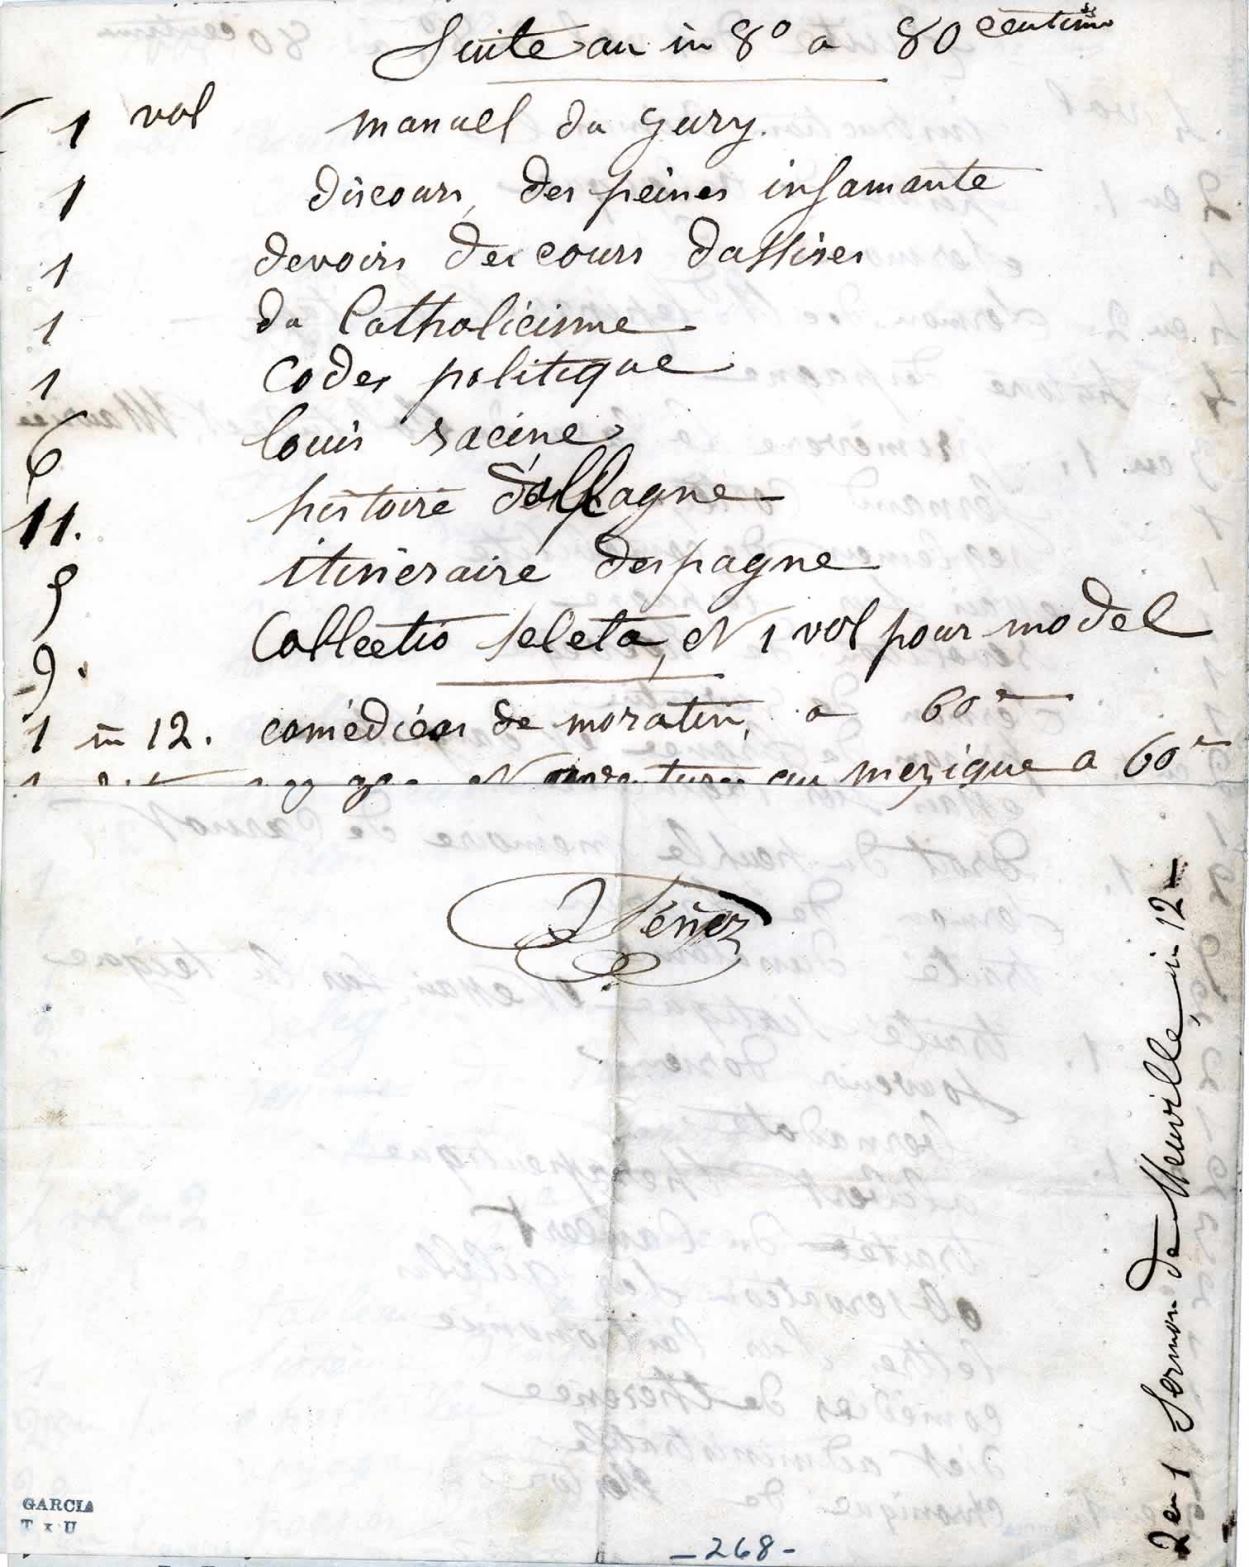 Suite au in 8º a 80 centimes
1 vol manuel du jury.
1 discours, des peines infamante
1 devoirs des cours dassises
1 du Catholicisme
1 Codes politique
6 louis racine
11. histoire d'espagne
9 itineraire despagne
9. Collectio seleta, et 1 vol pour model
1 in 12. comédies de moratin, a 60
au mexique a 60
2 en 1 Sermon de Neuville, in 12
GARCIA
T x U
-268-